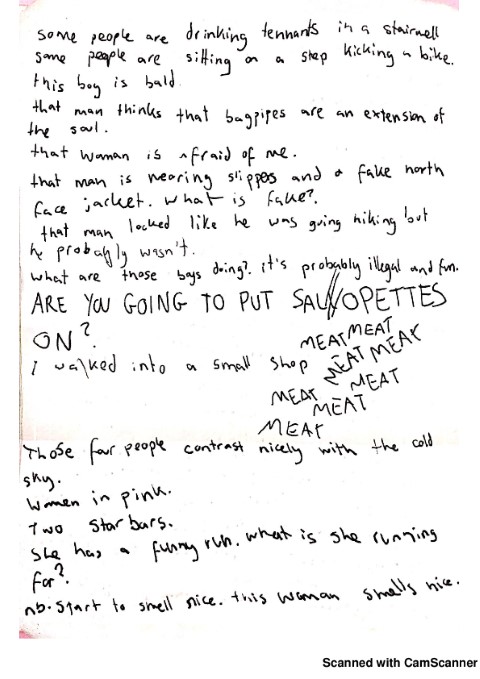 some people are drinking tennants in a stairwell
some people are sitting on a step kicking a bike.
this boy is bald.
that man thinks that bagpipes are an extension of
the soul.
that woman is afraid of me.
that man is wearing slippes and a fake north
face jacket. what is fake?.
that man looked like he was going hiking but
he probably wasn't.
what are those boys doing?. it's probably illegal and fun.
ARE YOU GOING TO PUT SAL//OPETTES
ON?
I walked into a small shop MEAT MEAT
MEAT MEAT
MEAT MEAT
MEAT
MEAT
Those four people contrast nicely with the cold
sky.
Women in pink.
Two star bars.
She has a funny run. what is she running
for?.
nb. start to smell nice. this woman smells nice.
Scanned with CamScanner